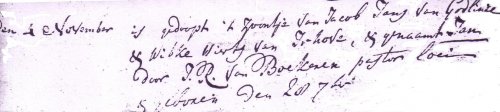 den 4 November is gedoopt 't zoontje van Jacob Jans van Godlinse
& Wibke Wirtjes van Irhove, & genaamt Jan
door J. R. van Boekeren pastor loci
& geboren den 28 7br